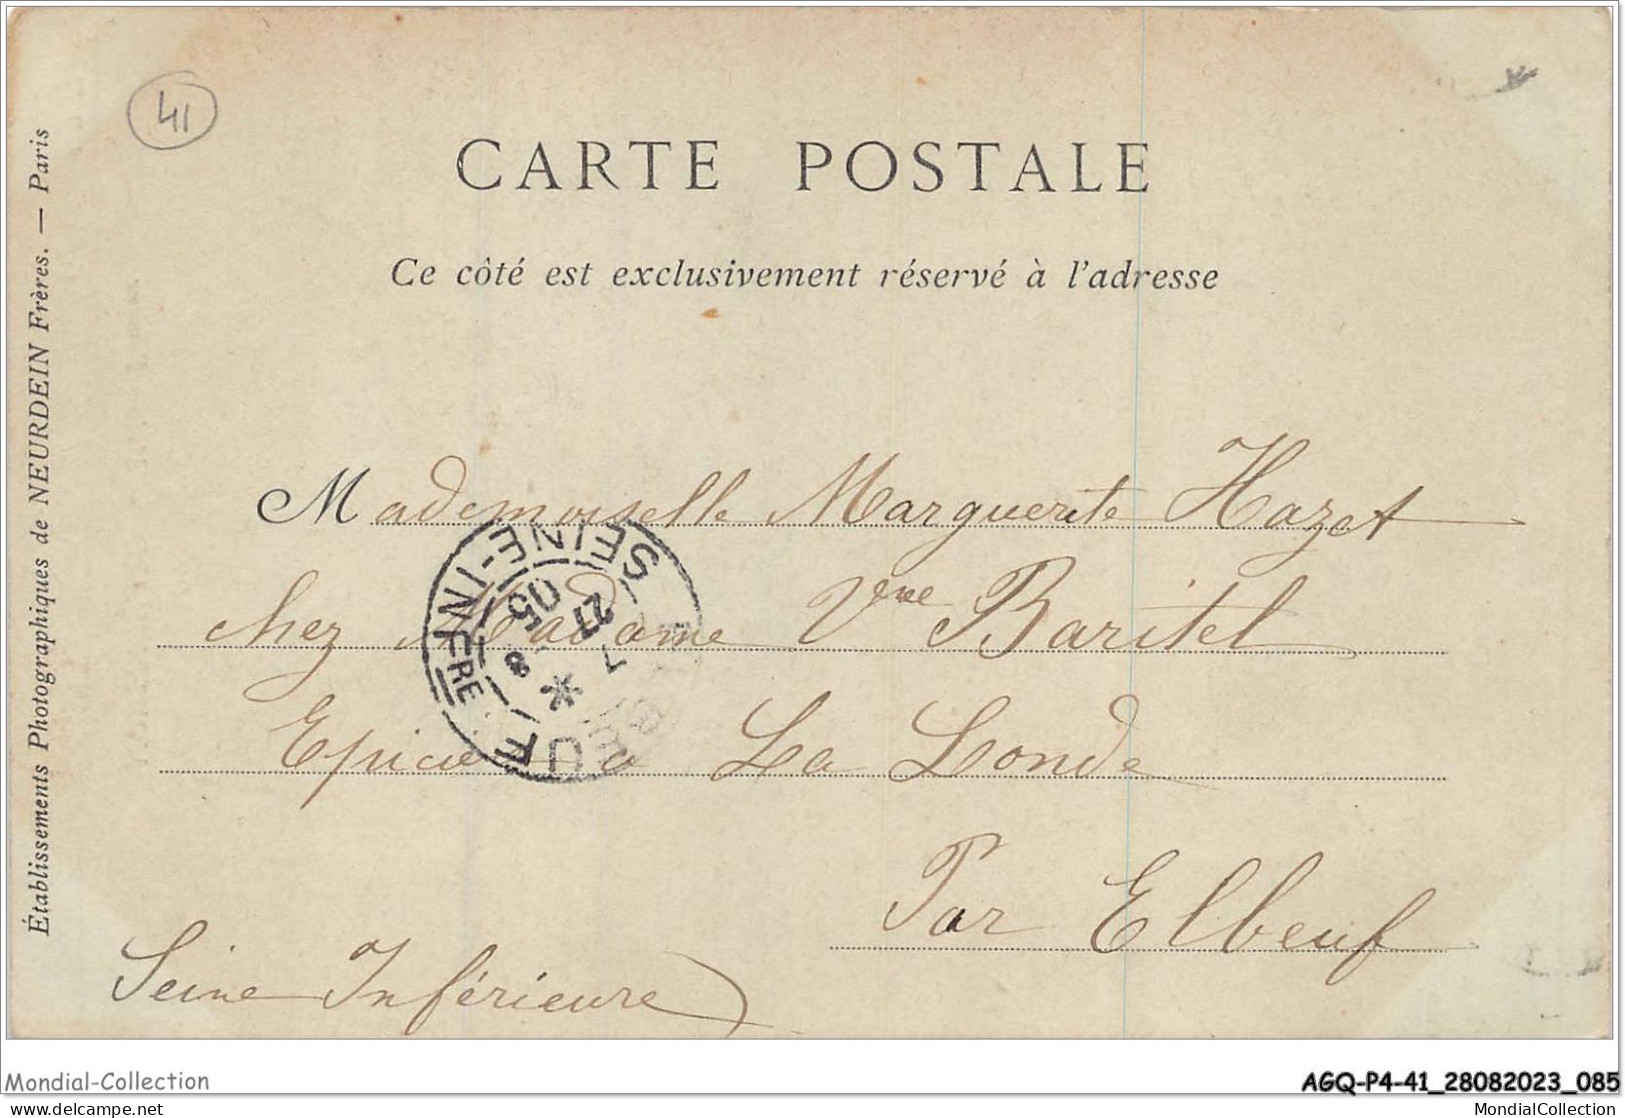 41
CARTE POSTALE
Ce côté est exclusivement réservé à l'adresse
Établissements Photographiques de NEURDEIN Frères. — Paris
Mademoiselle Marguerite Hazet
chez Madame Vve Baritel
Epicière a La Londe
Par Elbeuf
Seine Inférieure
SEINE-INFRE
7
27
8
05
Mondial-Collection
AGQ-P4-41_28082023_085
www.delcampe.net
MondialCollection